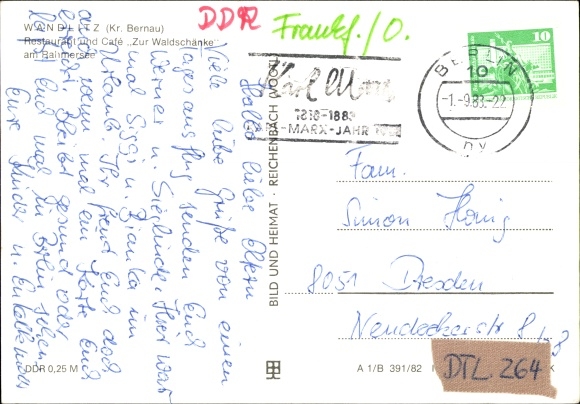 DDR
Frankf./O.
WANDLITZ (Kr. Bernau)
Restaurant und Café „Zur Waldschänke"
am Rahmersee
Hallo liebe Eltern
Viele liebe Grüße von einem
Tagesausflug senden Euch
Werner u. Sieglinde. Hier war
mal Siggi u. Bianka im
Urlaub. Ihr freut Euch doch
wenn mal ein Karte Euch
Bleibt gesund oder
Euch mal in Berlin sehen
Eure Kinder u. Enkelkinder
DDR 0,25 M
BILD UND HEIMAT · REICHENBACH (VOGTL
Karl Marx
1818-1883
KARL-MARX-JAHR 1983
BERLIN
10
-1.-9.83.-22
10
Fam.
Simon Honig
8051 Dresden
Neudeckerstr 8
A 1/B 391/82
DTL. 264